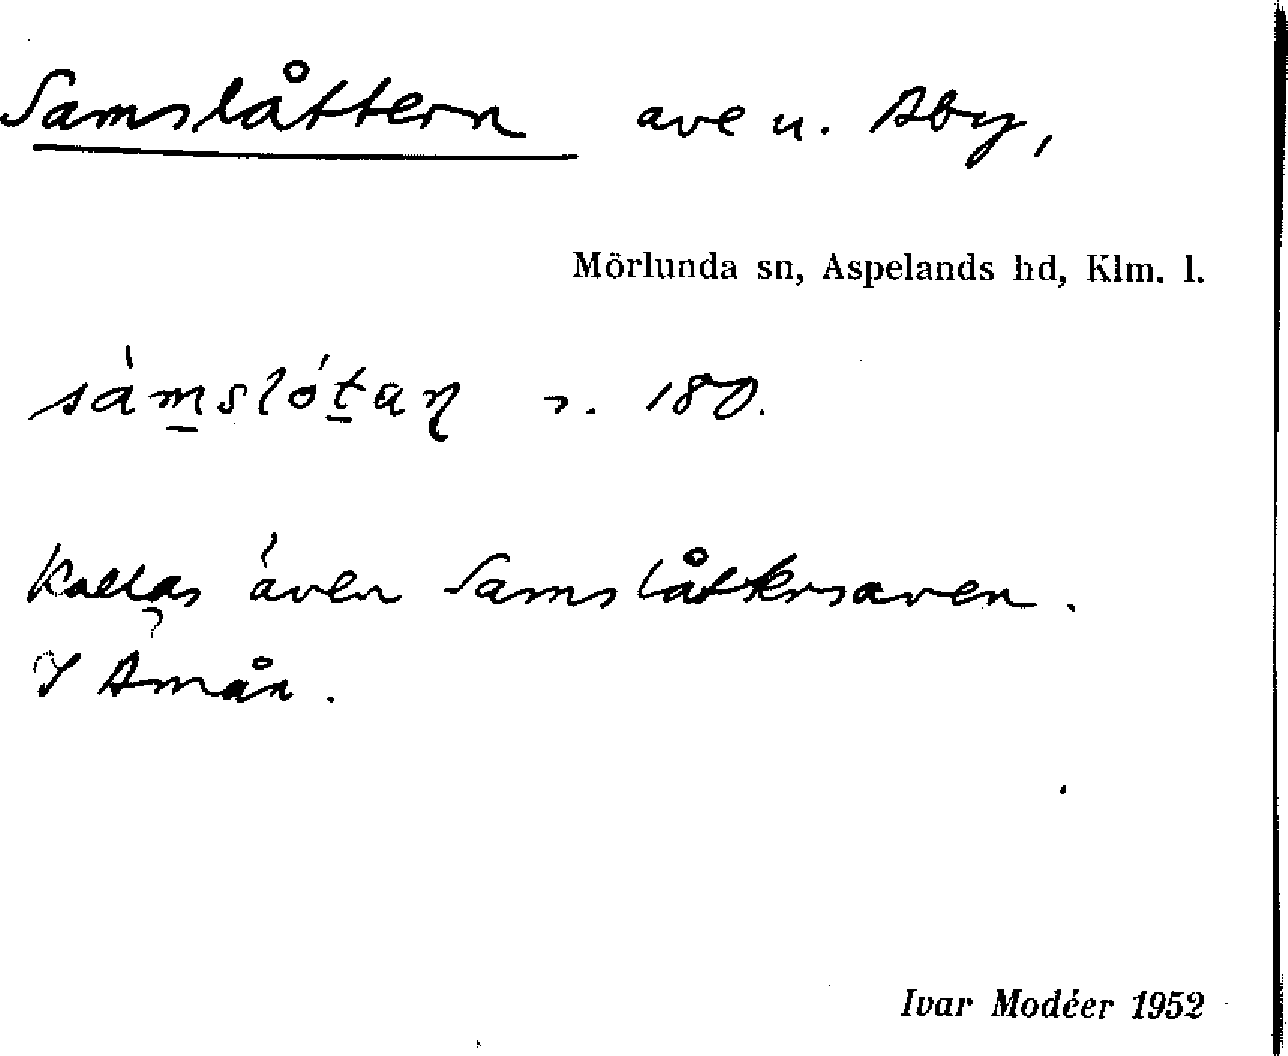 Samslåttern ave u. Åby,
Mörlunda sn, Aspelands hd, Klm. l.
sàmslótaɳ s. 180.
Kallas även Samslåtkrsaven.
I Åmån.
Ivar Modéer 1952